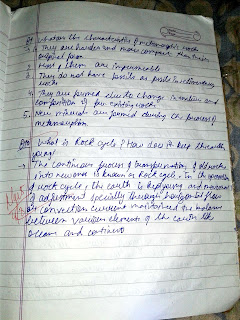 Q9 What are the characteristics of metamorphic rocks
1. They are harder and more compact than their
original form
2. Most of them are impermeable
3. They do not have fossils as fossils in sedimentary
rocks
4. They are formed due to change in texture and
composition of pre existing rocks
5. New minerals are formed during the process of
metamorphism
Q10 What is Rock cycle? How does it keep the earth
young?
→ The continuous process of transformation of old rocks
into new ones is known as Rock cycle. In the operation
of rock cycle, the earth is kept young and
of adjustment specially through horizontal flow
of convection currents maintained the balance
between various elements of the earth like
Ocean and continents